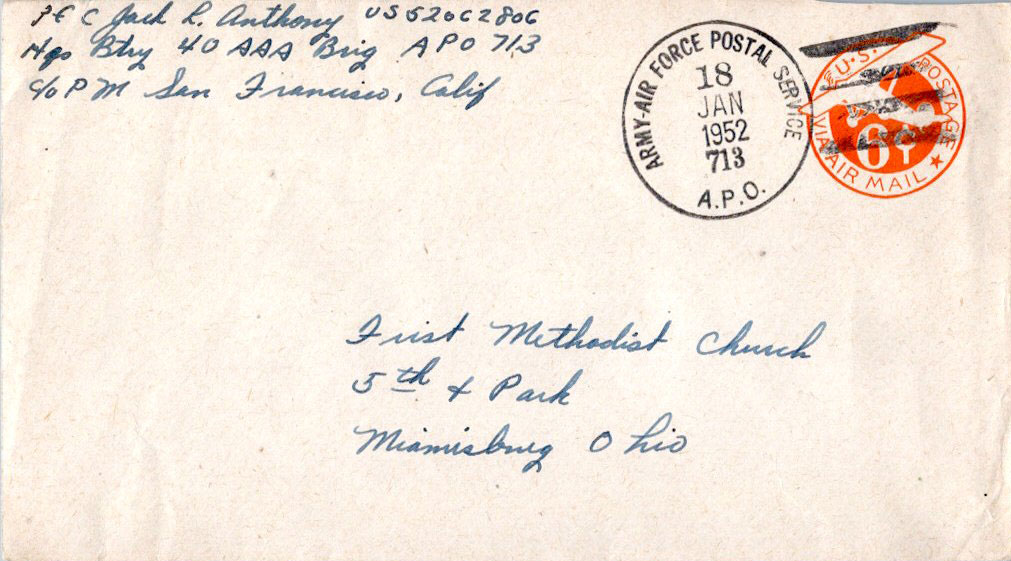 PFC Jack L. Anthony US52062806
Hqs Btry 40 AAA Brig APO 713
c/o PM San Francisco, Calif
ARMY-AIR FORCE POSTAL SERVICE
18
JAN
1952
713
A.P.O.
U.S. POSTAGE
6¢
VIA AIR MAIL
Frist Methodist Church
5th & Park
Miamisburg Ohio